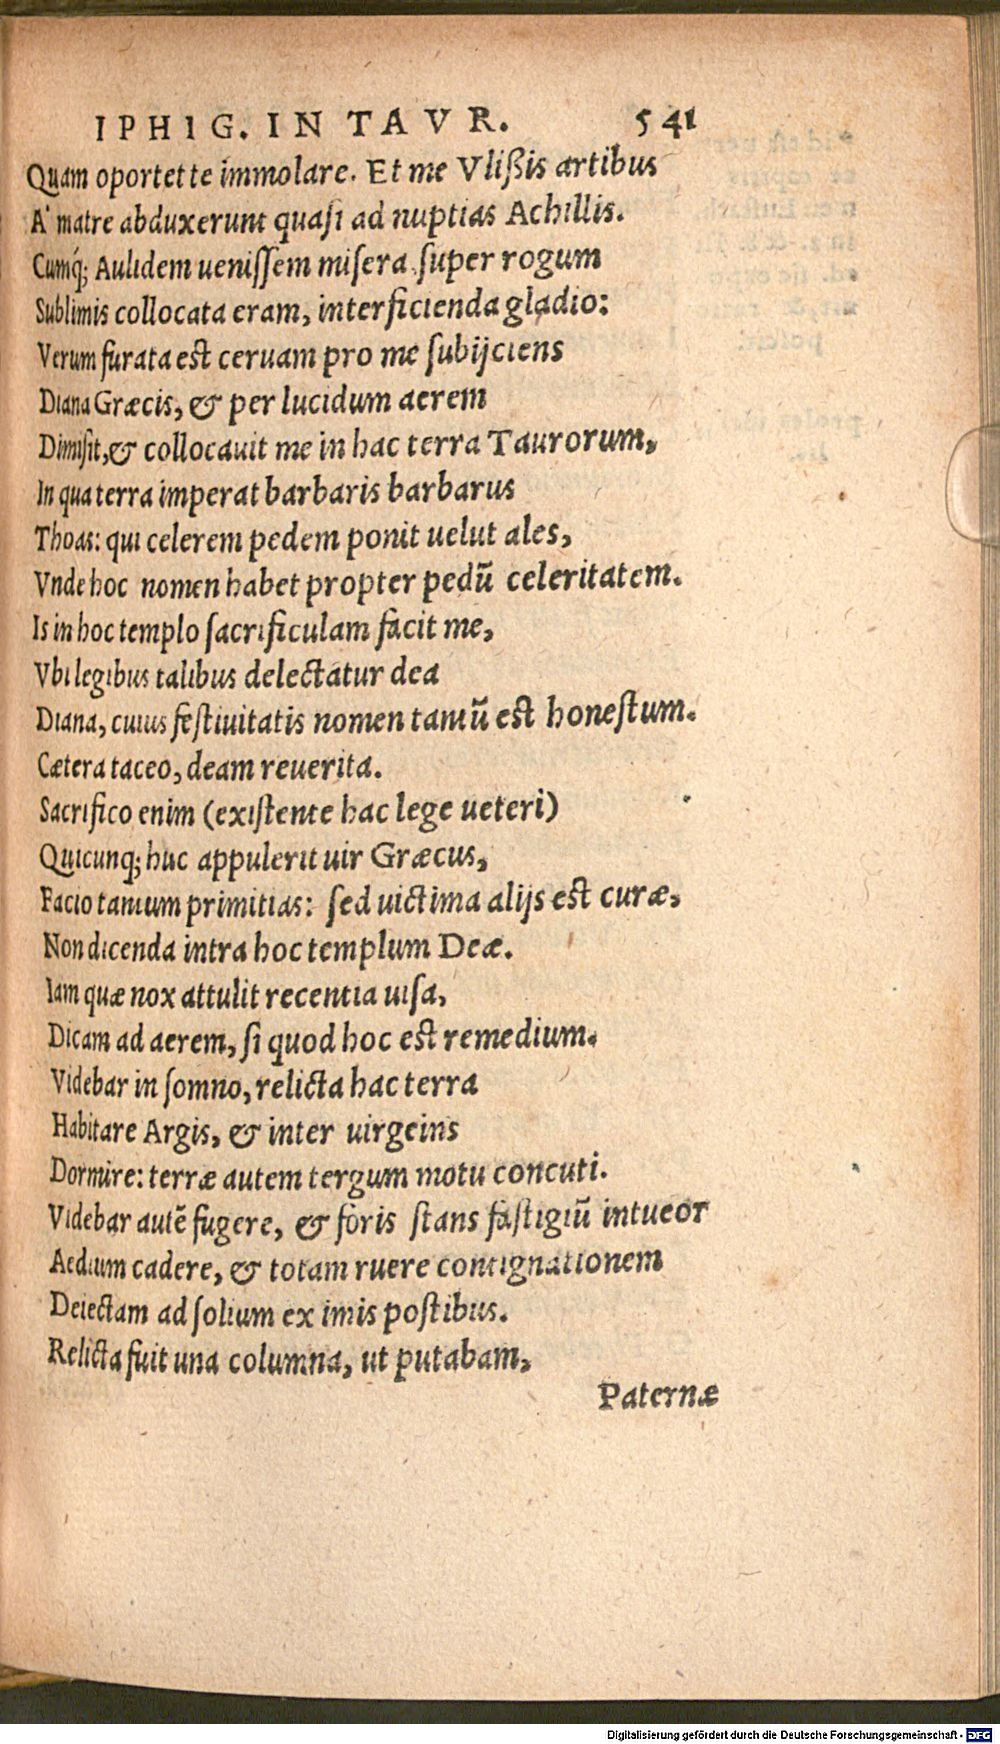 IPHIG. IN TAVR. 541
Quam oportet te immolare. Et me Vlißis artibus
A' matre abduxerunt quasi ad nuptias Achillis.
Cumq; Aulidem uenissem misera super rogum
Sublimis collocata eram, interficienda gladio:
Verum furata est ceruam pro me subijciens
Diana Græcis, & per lucidum aerem
Dimisit, & collocauit me in hac terra Taurorum,
In qua terra imperat barbaris barbarus
Thoas: qui celerem pedem ponit uelut ales,
Vnde hoc nomen habet propter pedũ celeritatem.
Is in hoc templo sacrificulam facit me,
Vbi legibus talibus delectatur dea
Diana, cuius festiuitatis nomen tantũ est honestum.
Cætera taceo, deam reuerita.
Sacrifico enim (existente hac lege ueteri)
Quicunq; huc appulerit uir Græcus,
Facio tantum primitias: sed uictima alijs est curæ,
Non dicenda intra hoc templum Deæ.
Iam quæ nox attulit recentia uisa,
Dicam ad aerem, si quod hoc est remedium.
Videbar in somno, relicta hac terra
Habitare Argis, & inter uirgeins
Dormire: terræ autem tergum motu concuti.
Videbar autẽ fugere, & foris stans fastigiũ intueor
Aedium cadere, & totam ruere contignationem
Deiectam ad solium ex imis postibus.
Relicta fuit una columna, ut putabam,
Paternæ
Digitalisierung gefördert durch die Deutsche Forschungsgemeinschaft - DFG